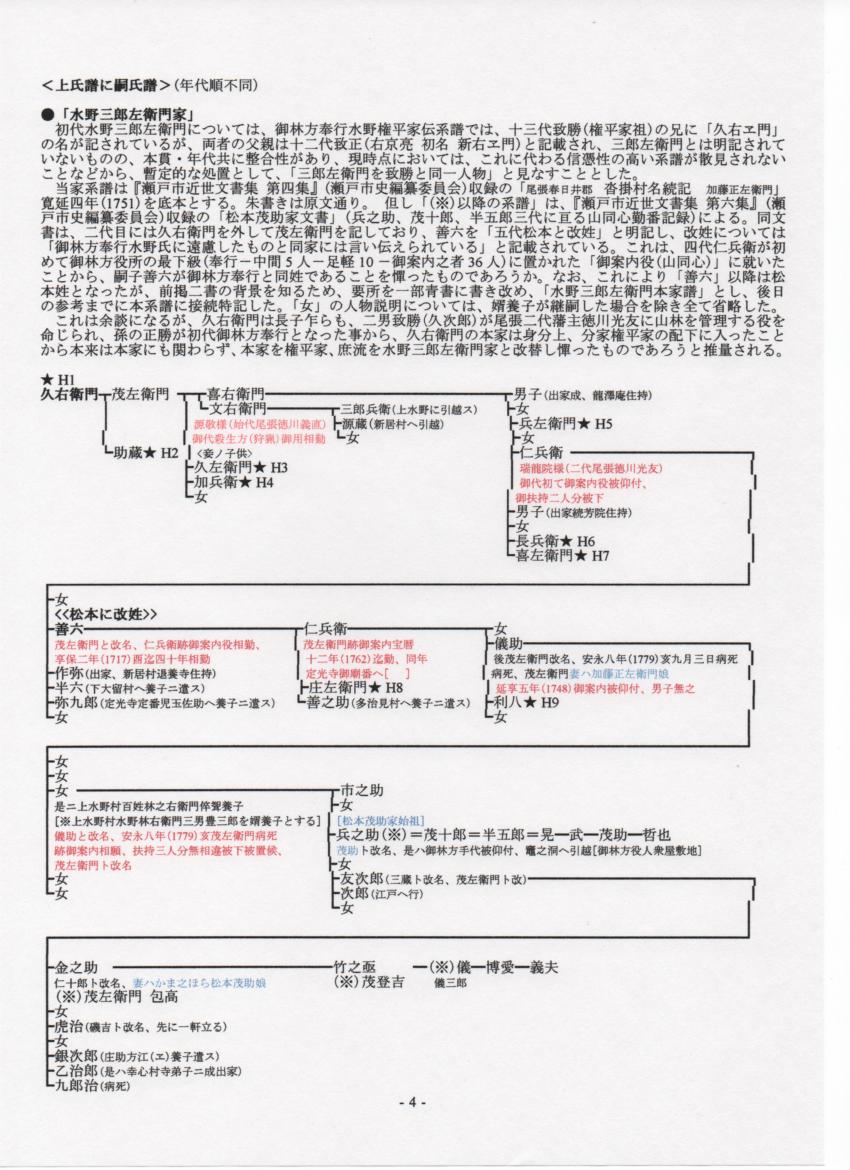 ＜上氏譜に嗣氏譜＞(年代順不同)
●「水野三郎左衛門家」
初代水野三郎左衛門については、御林方奉行水野権平家伝系譜では、十三代致勝(権平家祖)の兄に「久右ヱ門」
の名が記されているが、両者の父親は十二代致正(右京亮 初名 新右ヱ門)と記載され、三郎左衛門とは明記されて
いないものの、本貫・年代共に整合性があり、現時点においては、これに代わる信憑性の高い系譜が散見されない
ことなどから、暫定的な処置として、「三郎左衛門を致勝と同一人物」と見なすこととした。
当家系譜は『瀬戸市近世文書集 第四集』(瀬戸市史編纂委員会)収録の「尾張春日井郡 沓掛村名続記 加藤正左衛門」
寛延四年(1751)を底本とする。朱書きは原文通り。 但し「(※)以降の系譜」は、『瀬戸市近世文書集 第六集』(瀬
戸市史編纂委員会)収録の「松本茂助家文書」(兵之助、茂十郎、半五郎三代に亘る山同心勤番記録)による。同文
書は、二代目には久右衛門を外して茂左衛門を記しており、善六を「五代松本と改姓」と明記し、改姓については
「御林方奉行水野氏に遠慮したものと同家には言い伝えられている」と記載されている。これは、四代仁兵衛が初
めて御林方役所の最下級(奉行－中間 5 人－足軽 10 －御案内之者 36 人)に置かれた「御案内役(山同心)」に就いた
ことから、嗣子善六が御林方奉行と同姓であることを憚ったものであろうか。なお、これにより「善六」以降は松
本姓となったが、前掲二書の背景を知るため、要所を一部青書に書き改め、「水野三郎左衛門本家譜」とし、後日
の参考までに本系譜に接続特記した。「女」の人物説明については、婿養子が継嗣した場合を除き全て省略した。
これは余談になるが、久右衛門は長子乍らも、二男致勝(久次郎)が尾張二代藩主徳川光友に山林を管理する役を
命じられ、孫の正勝が初代御林方奉行となった事から、久右衛門の本家は身分上、分家権平家の配下に入ったこと
から本来は本家にも関わらず、本家を権平家、庶流を水野三郎左衛門家と改替し憚ったものであろうと推量される。
★ H1
久右衛門 茂左衛門 喜右衛門 男子(出家成、龍澤庵住持)
文右衛門 三郎兵衛(上水野に引越ス) 女
源敬様(始代尾張徳川義直) 源蔵(新居村へ引越) 兵左衛門★ H5
御代殺生方(狩猟)御用相勤 女 女
助蔵★ H2 <妾ノ子供> 仁兵衛
久左衛門★ H3 瑞龍院様(二代尾張徳川光友)
加兵衛★ H4 御代初て御案内役被仰付、
女 御扶持二人分被下
男子(出家続芳院住持)
女
長兵衛★ H6
喜左衛門★ H7
女
<<松本に改姓>>
善六 仁兵衛 女
茂左衛門と改名、仁兵衛跡御案内役相勤、 茂左衛門跡御案内宝暦 儀助
享保二年(1717)酉迄四十年相勤 十二年(1762)迄勤、同年 後茂左衛門改名、安永八年(1779)亥九月三日病死
作弥(出家、新居村退養寺住持) 定光寺御廟番へ[ ] 病死、茂左衛門妻ハ加藤正左衛門娘
半六(下大留村へ養子ニ遣ス) 庄左衛門★ H8 延享五年(1748)御案内被仰付、男子無之
弥九郎(定光寺定番児玉佐助へ養子ニ遣ス) 善之助(多治見村へ養子ニ遣ス) 利八★ H9
女 女
女
女
女 市之助
是ニ上水野村百姓林之右衛門倅聟養子 女
[※上水野村水野林右衛門三男豊三郎を婿養子とする] [松本茂助家始祖]
儀助と改名、安永八年(1779)亥茂左衛門病死 兵之助(※)＝茂十郎＝半五郎＝晃―武―茂助―哲也
跡御案内相願、扶持三人分無相違被下被置候、 茂助ト改名、是ハ御林方手代被仰付、竈之洞へ引越[御林方役人衆屋敷地]
茂左衛門ト改名 女
女 友次郎(三蔵ト改名、茂左衛門ト改)
女 次郎(江戸へ行)
女
金之助 竹之亟 ―(※)儀―博愛―義夫
仁十郎ト改名、妻ハかま之ほら松本茂助娘 (※)茂登吉 儀三郎
(※)茂左衛門 包高
女
虎治(磯吉ト改名、先に一軒立る)
女
銀次郎(庄助方江(エ)養子遣ス)
乙治郎(是ハ幸心村寺弟子ニ成出家)
九郎治(病死)
- 4 -